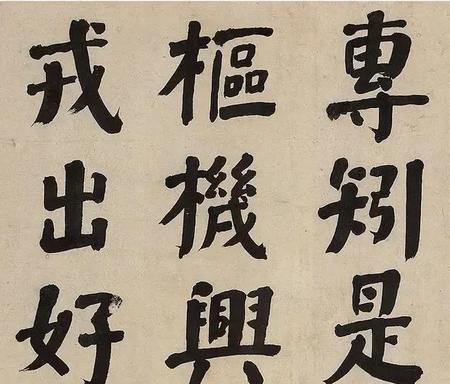 專矧是
樞機興
戎出好